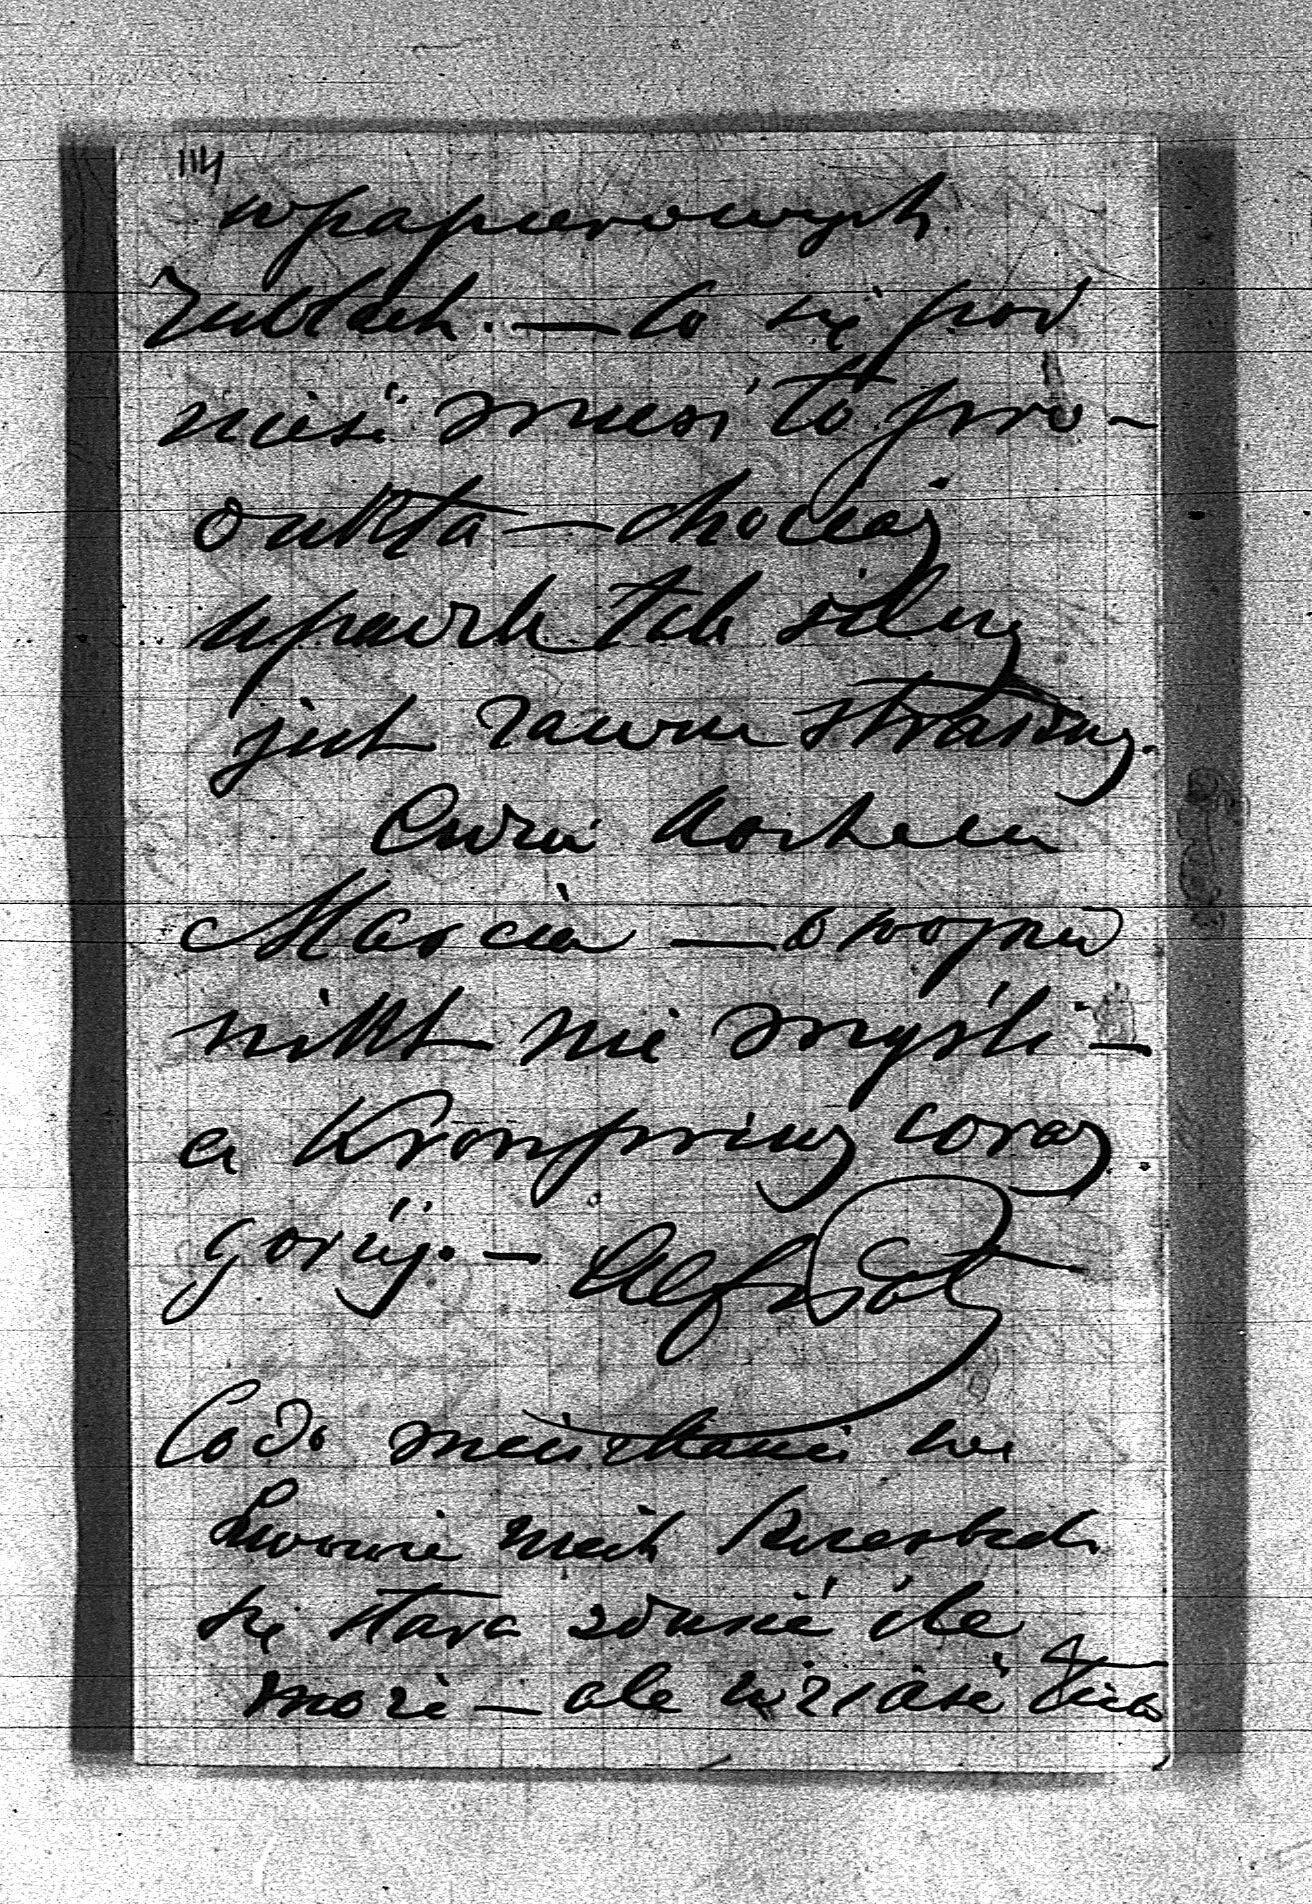 114
w papierowych
rublach. — Co się pod
niesie musi to pro-
dukta — chociaż
upadek tak silny
jest zawsze straszny.
Cudzi kochać
Marcia — o wojnie
nikt nie myśli —
a Kronprinz coraz
gorzej. — Alfred
Co do mieszkania we
Lwowie niech
się stara zdusić ile
może — ale wziąść